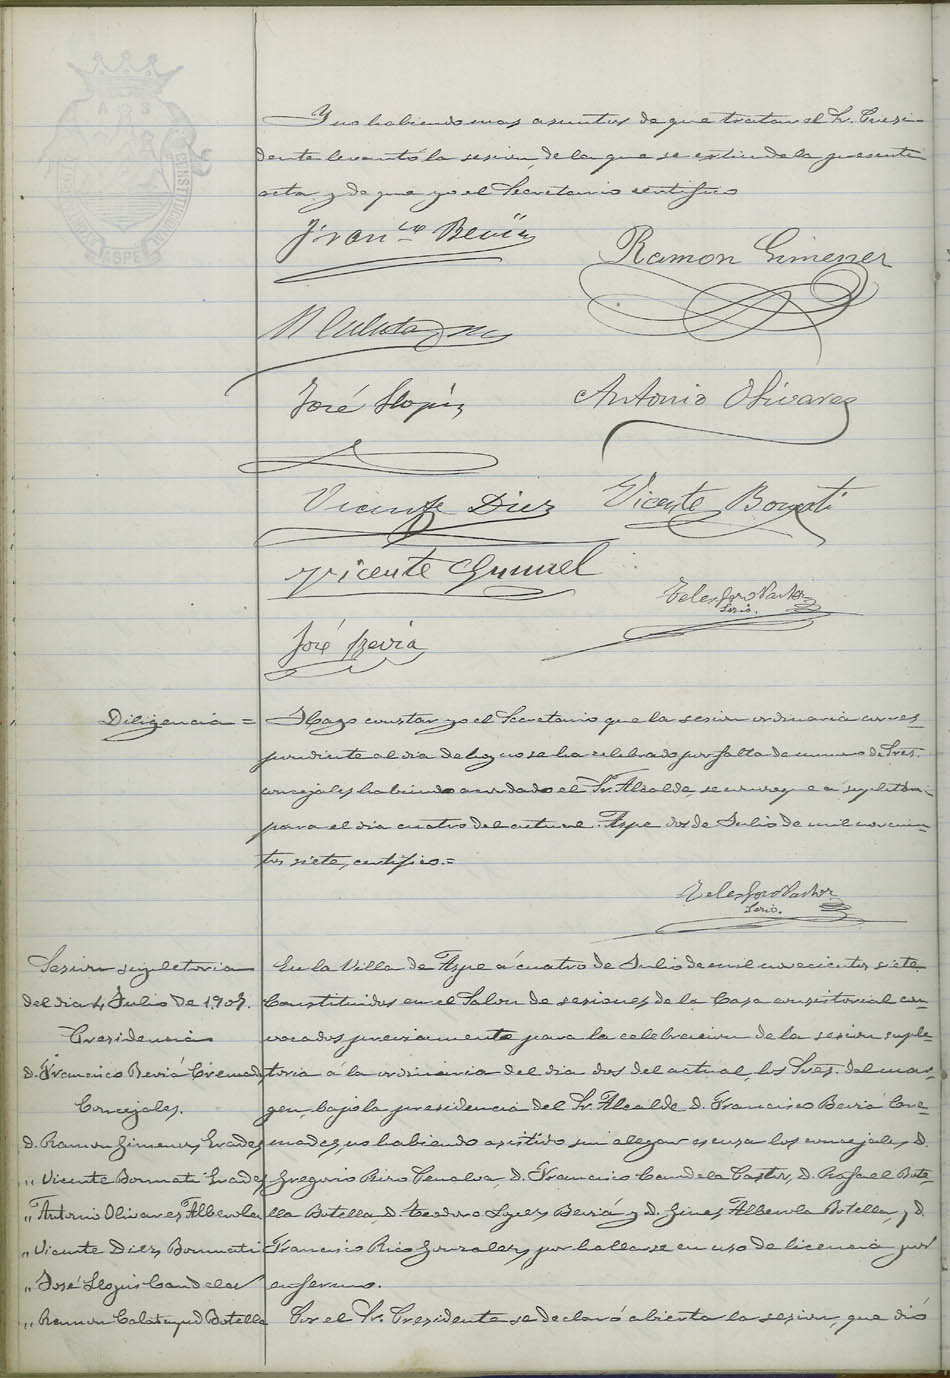 Y no habiendo mas asuntos de que tratar el Sr. Presi-
dente levantó la sesion, de la que se extiende la presente
acta, y de que yo el Secretario certifico
Franco Beviá
Ramon Gimenez
José Llopis
Antonio Olivares
Vicente Diez
Vicente Bonmati
Vicente
Telesforo Pastor
Srio.
José Beviá
Diligencia =
Hago constar yo el Secretario que la sesion ordinaria corres-
pondiente al dia de hoy no se ha celebrado por falta de numero de Sres.
concejales habiendo acordado el Sr. Alcalde, se convoque a supletoria
para el dia cuatro del actual. Aspe dos de Julio de mil novecien-
tos siete, certifico.=
Telesforo Pastor
Srio.
Sesion supletoria
del dia 4 Julio de 1907.
Presidencia
D. Francisco Beviá Cremades
Concejales.
D. Ramon Gimenez Erades
" Vicente Bonmati Erades
" Antonio Olivares Alberola
" Vicente Diez Bonmati
" José Llopis Candela
" Ramon Calatayud Botella
En la Villa de Aspe á cuatro de Julio de mil novecientos siete.
Constituidos en el Salon de sesiones de la Casa consistorial con-
vocados previamente para la celebracion de la sesion suple-
toria á la ordinaria del dia dos del actual, los Sres. del mar-
gen, bajo la presidencia del Sr. Alcalde D. Francisco Beviá Cre-
mades, no habiendo asistido sin alegar escusa los concejales D.
Gregorio Penalva, D. Francisco Candela Pastor, D. Rafael Bote-
lla Botella, D. Teodoro Beviá y D. Gines Alberola Botella, y D.
Francisco Rico Gonzalez, por hallarse en uso de licencia por
enfermo.
Por el Sr. Presidente se declaró abierta la sesion, que dió